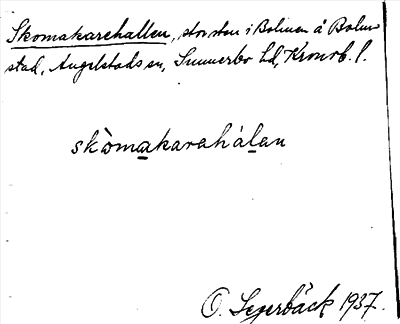 Skomakarehallen, stor sten i Bolmen å Bolm-
stad, Angelstads sn, Sunnerbo hd, Kronob. l.
skòmakarahálan
O. Segerbäck 1937.